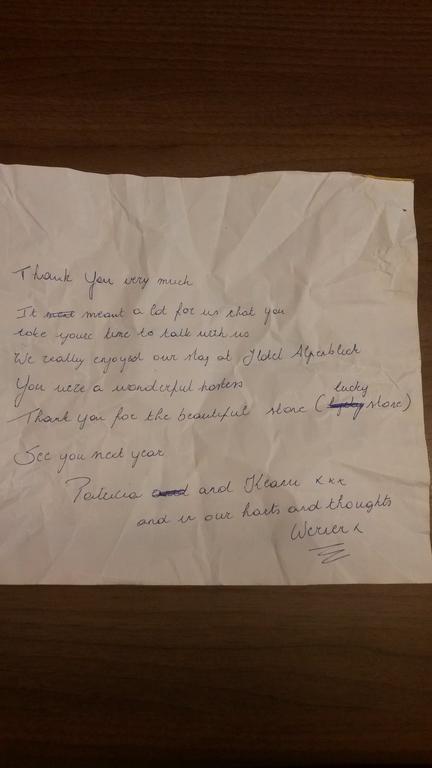 Thank You very much
It meant a lot for us that you
take youre time to talk with us
We really enjoyed our stay at Hotel Alpenblick
You were a wonderful hostess
Thank you for the beautiful stone (lucky stone)
See you next year
Patricia and Keanu xxx
and in our harts and thoughts
Werner x